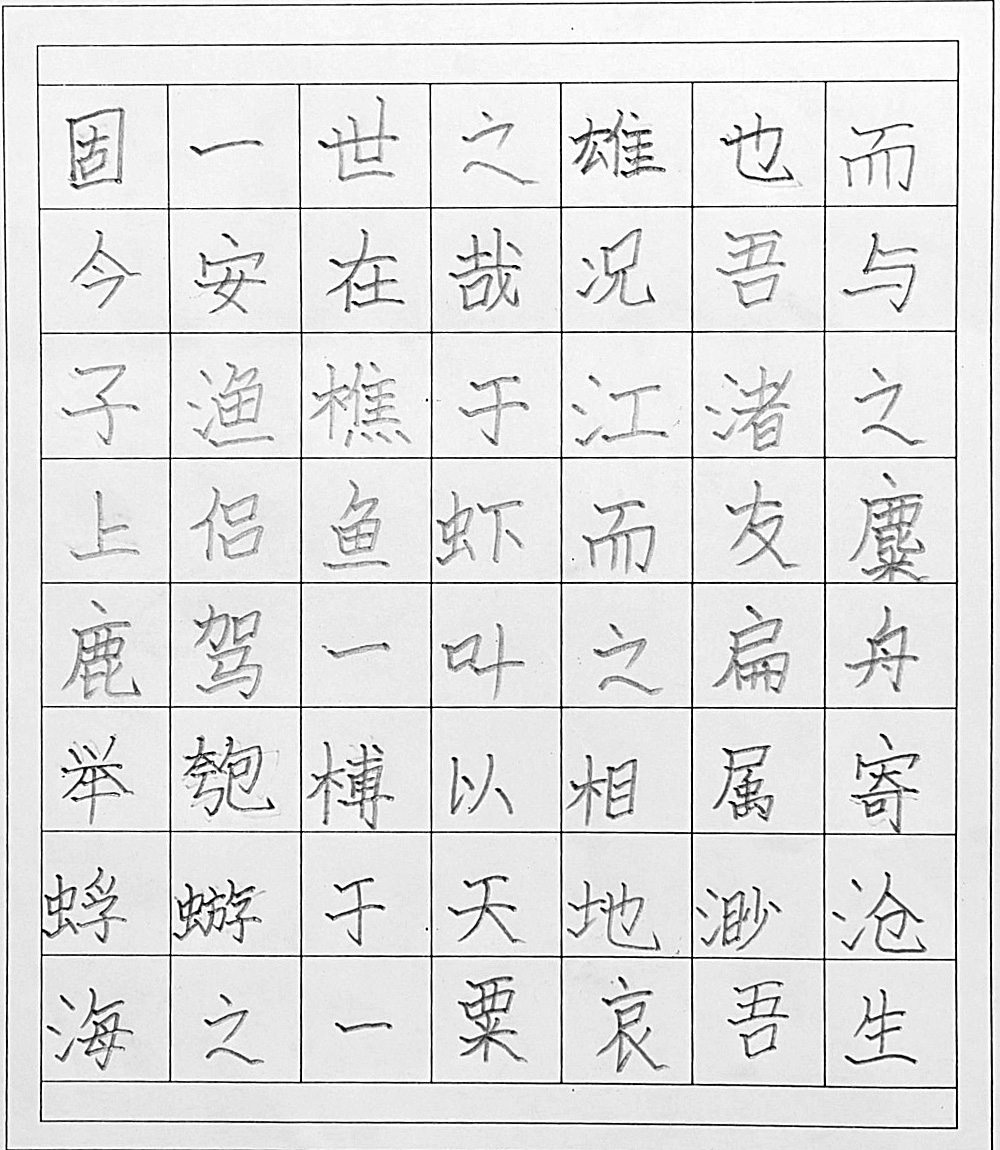 固一世之雄也而
今安在哉况吾与
子渔樵于江渚之
上侣鱼虾而友麋
鹿驾一叶之扁舟
举匏榑以相属寄
蜉蝣于天地渺沧
海之一粟哀吾生